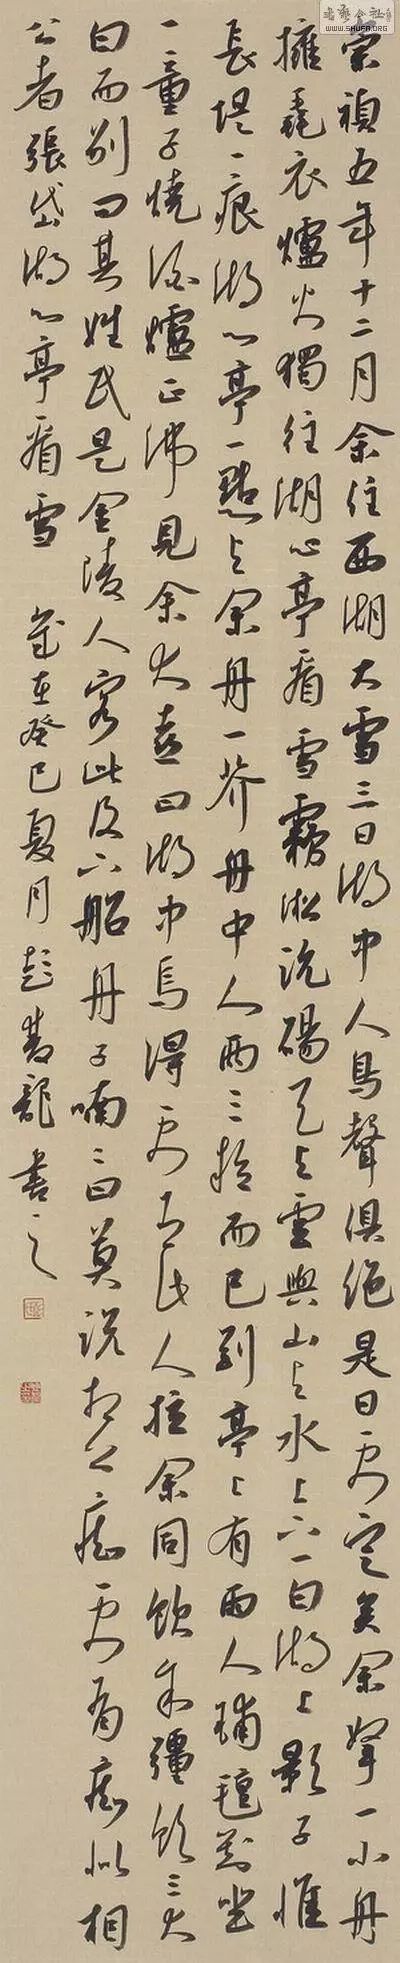 崇禎五年十二月余住西湖大雪三日湖中人鳥聲俱絕是日更定矣余挐一小舟
擁毳衣爐火獨往湖心亭看雪霧淞沆碭天与雲與山与水上下一白湖上影子惟
長堤一痕湖心亭一點与余舟一芥舟中人兩三粒而已到亭上有兩人鋪氈對坐
一童子燒酒爐正沸見余大喜曰湖中焉得更有此人拉余同飲余彊飲三大
白而別問其姓氏是金陵人客此及下船舟子喃喃曰莫説相公癡更有癡似相
公者張岱湖心亭看雪 歲在癸巳夏月彭龍書之
WWW.SHUFA.ORG